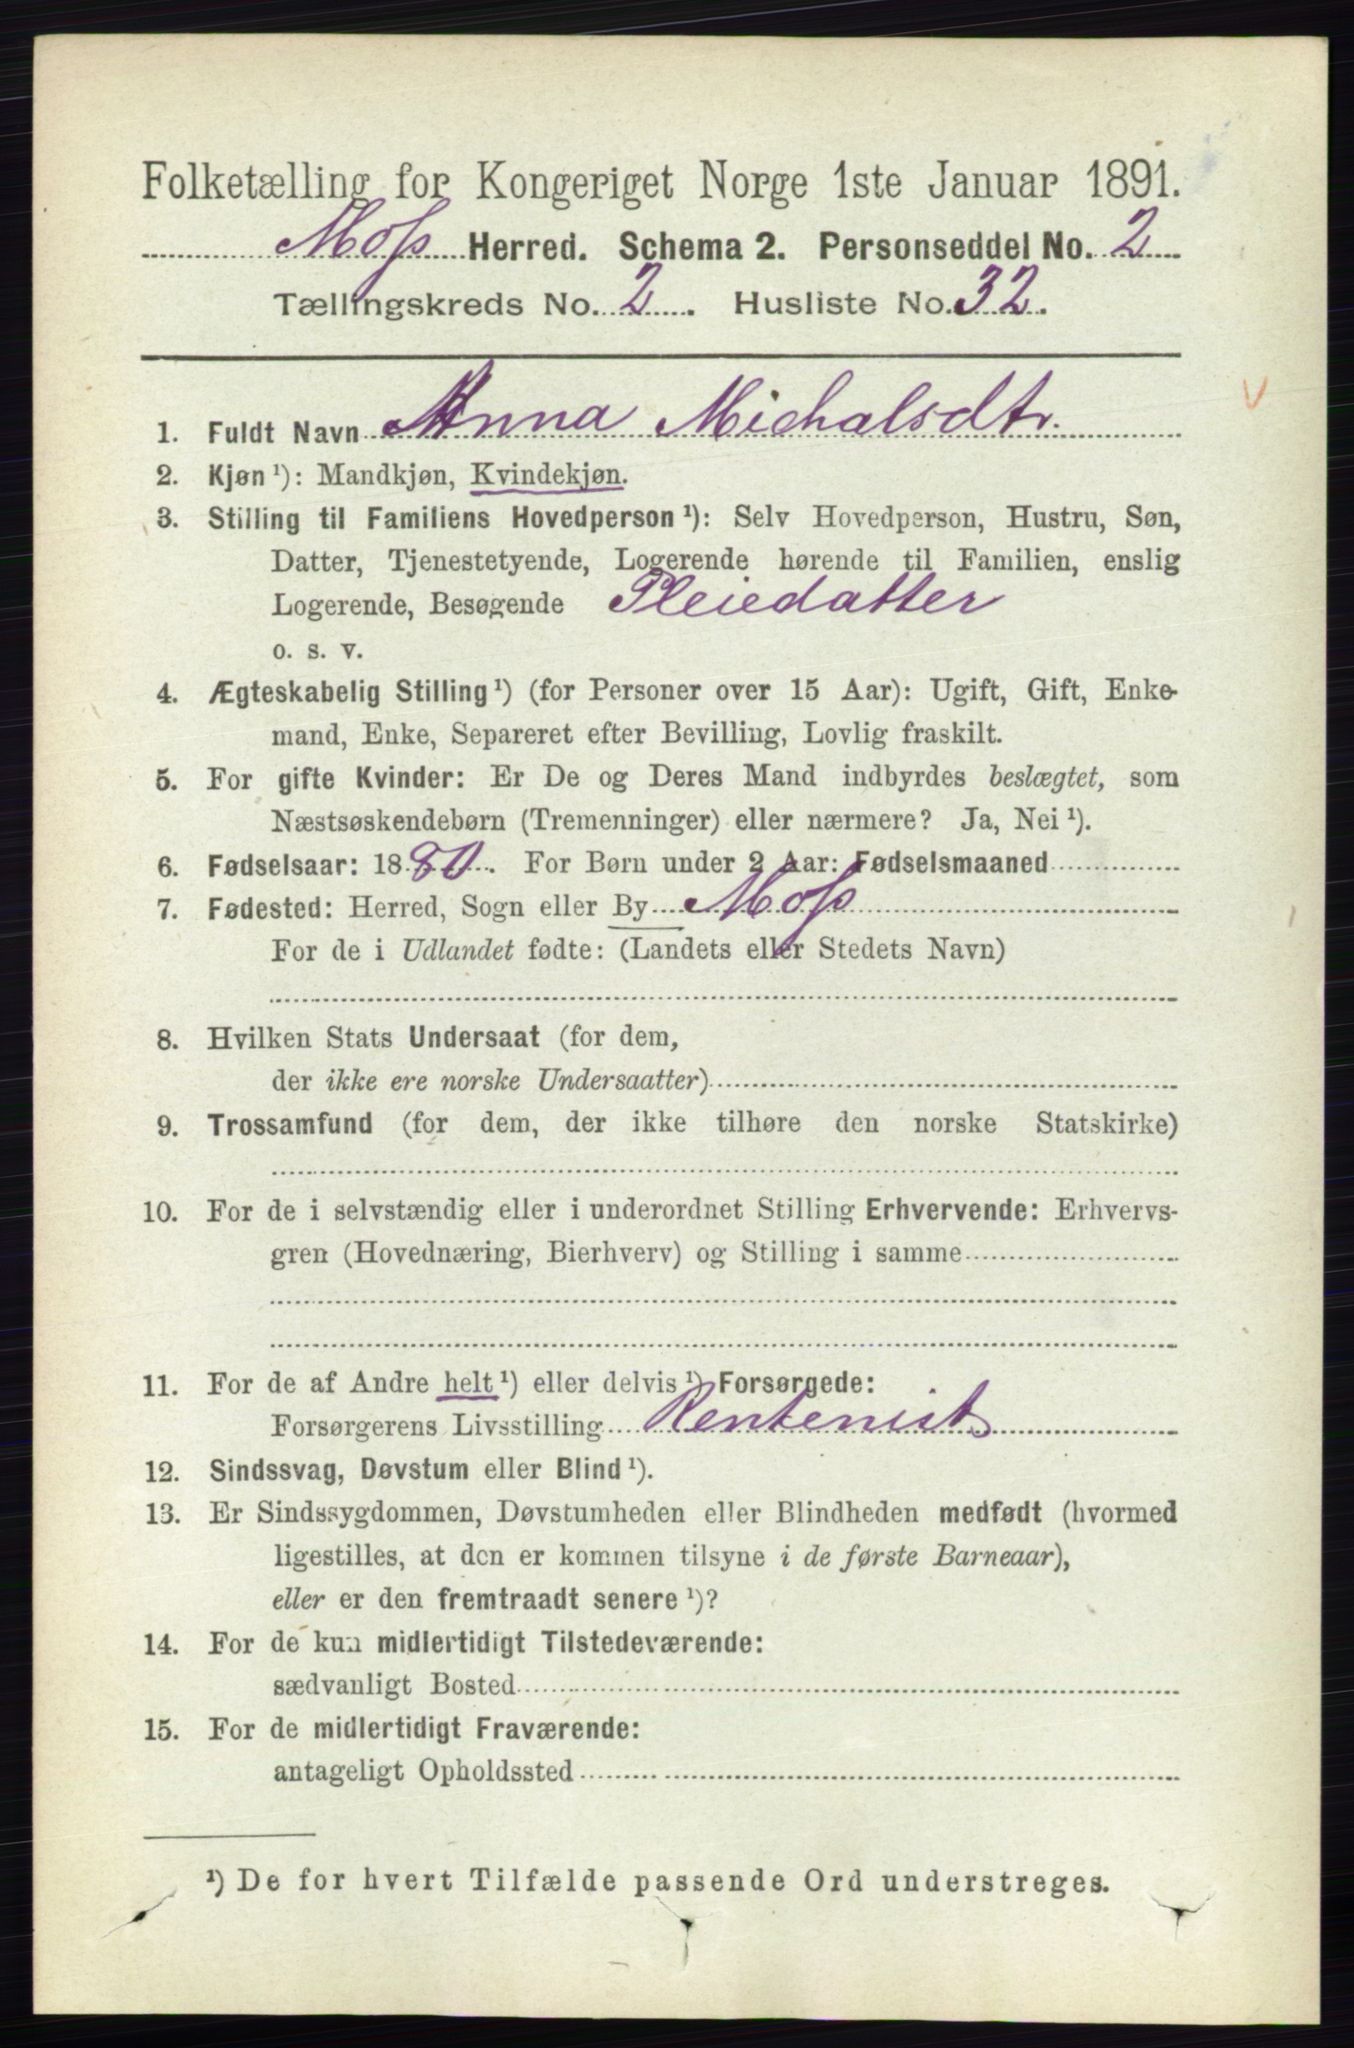 Folketælling for Kongeriget Norge 1ste Januar 1891.
Moss Herred. Schema 2. Personseddel No. 2
Tællingskreds No. 2. Husliste No. 32.
1. Fuldt Navn Anna Michalsdtr.
2. Kjøn ¹): Mandkjøn, Kvindekjøn.
3. Stilling til Familiens Hovedperson ¹): Selv Hovedperson, Hustru, Søn,
Datter, Tjenestetyende, Logerende hørende til Familien, enslig
Logerende, Besøgende Pleiedatter
o. s. v.
4. Ægteskabelig Stilling ¹) (for Personer over 15 Aar): Ugift, Gift, Enke-
mand, Enke, Separeret efter Bevilling, Lovlig fraskilt.
5. For gifte Kvinder: Er De og Deres Mand indbyrdes beslægtet, som
Næstsøskendebørn (Tremenninger) eller nærmere? Ja, Nei ¹).
6. Fødselsaar: 1880. For Børn under 2 Aar: Fødselsmaaned
7. Fødested: Herred, Sogn eller By Moss
For de i Udlandet fødte: (Landets eller Stedets Navn)
8. Hvilken Stats Undersaat (for dem,
der ikke ere norske Undersaatter)
9. Trossamfund (for dem, der ikke tilhøre den norske Statskirke)
10. For de i selvstændig eller i underordnet Stilling Erhvervende: Erhvervs-
gren (Hovednæring, Bierhverv) og Stilling i samme
11. For de af Andre helt ¹) eller delvis ¹) Forsørgede:
Forsørgerens Livsstilling Rentenist
12. Sindssvag, Døvstum eller Blind ¹).
13. Er Sindssygdommen, Døvstumheden eller Blindheden medfødt (hvormed
ligestilles, at den er kommen tilsyne i de første Barneaar),
eller er den fremtraadt senere ¹)?
14. For de kun midlertidigt Tilstedeværende:
sædvanligt Bosted
15. For de midlertidigt Fraværende:
antageligt Opholdssted
¹) De for hvert Tilfælde passende Ord understreges.